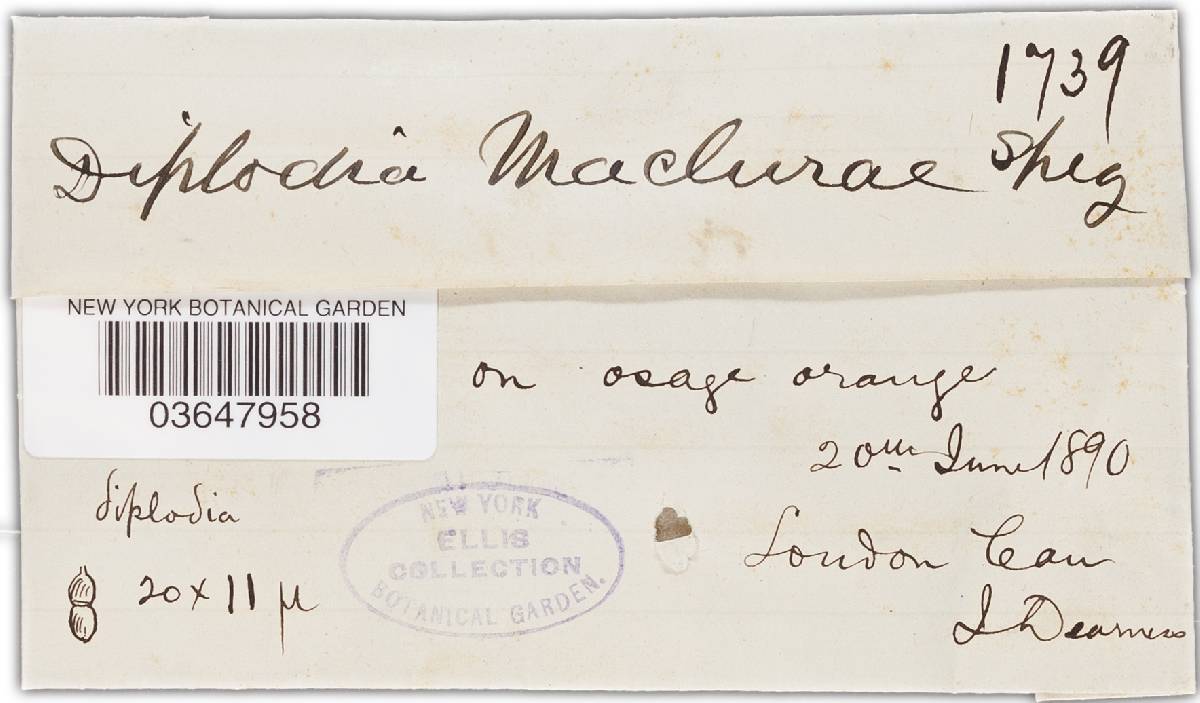 1739
Diplodia Maclurae Speg
NEW YORK BOTANICAL GARDEN
03647958
on osage orange
20th June 1890
diplodia
NEW YORK
ELLIS
COLLECTION
BOTANICAL GARDEN.
London Can
20 x 11 µ
J Dearness